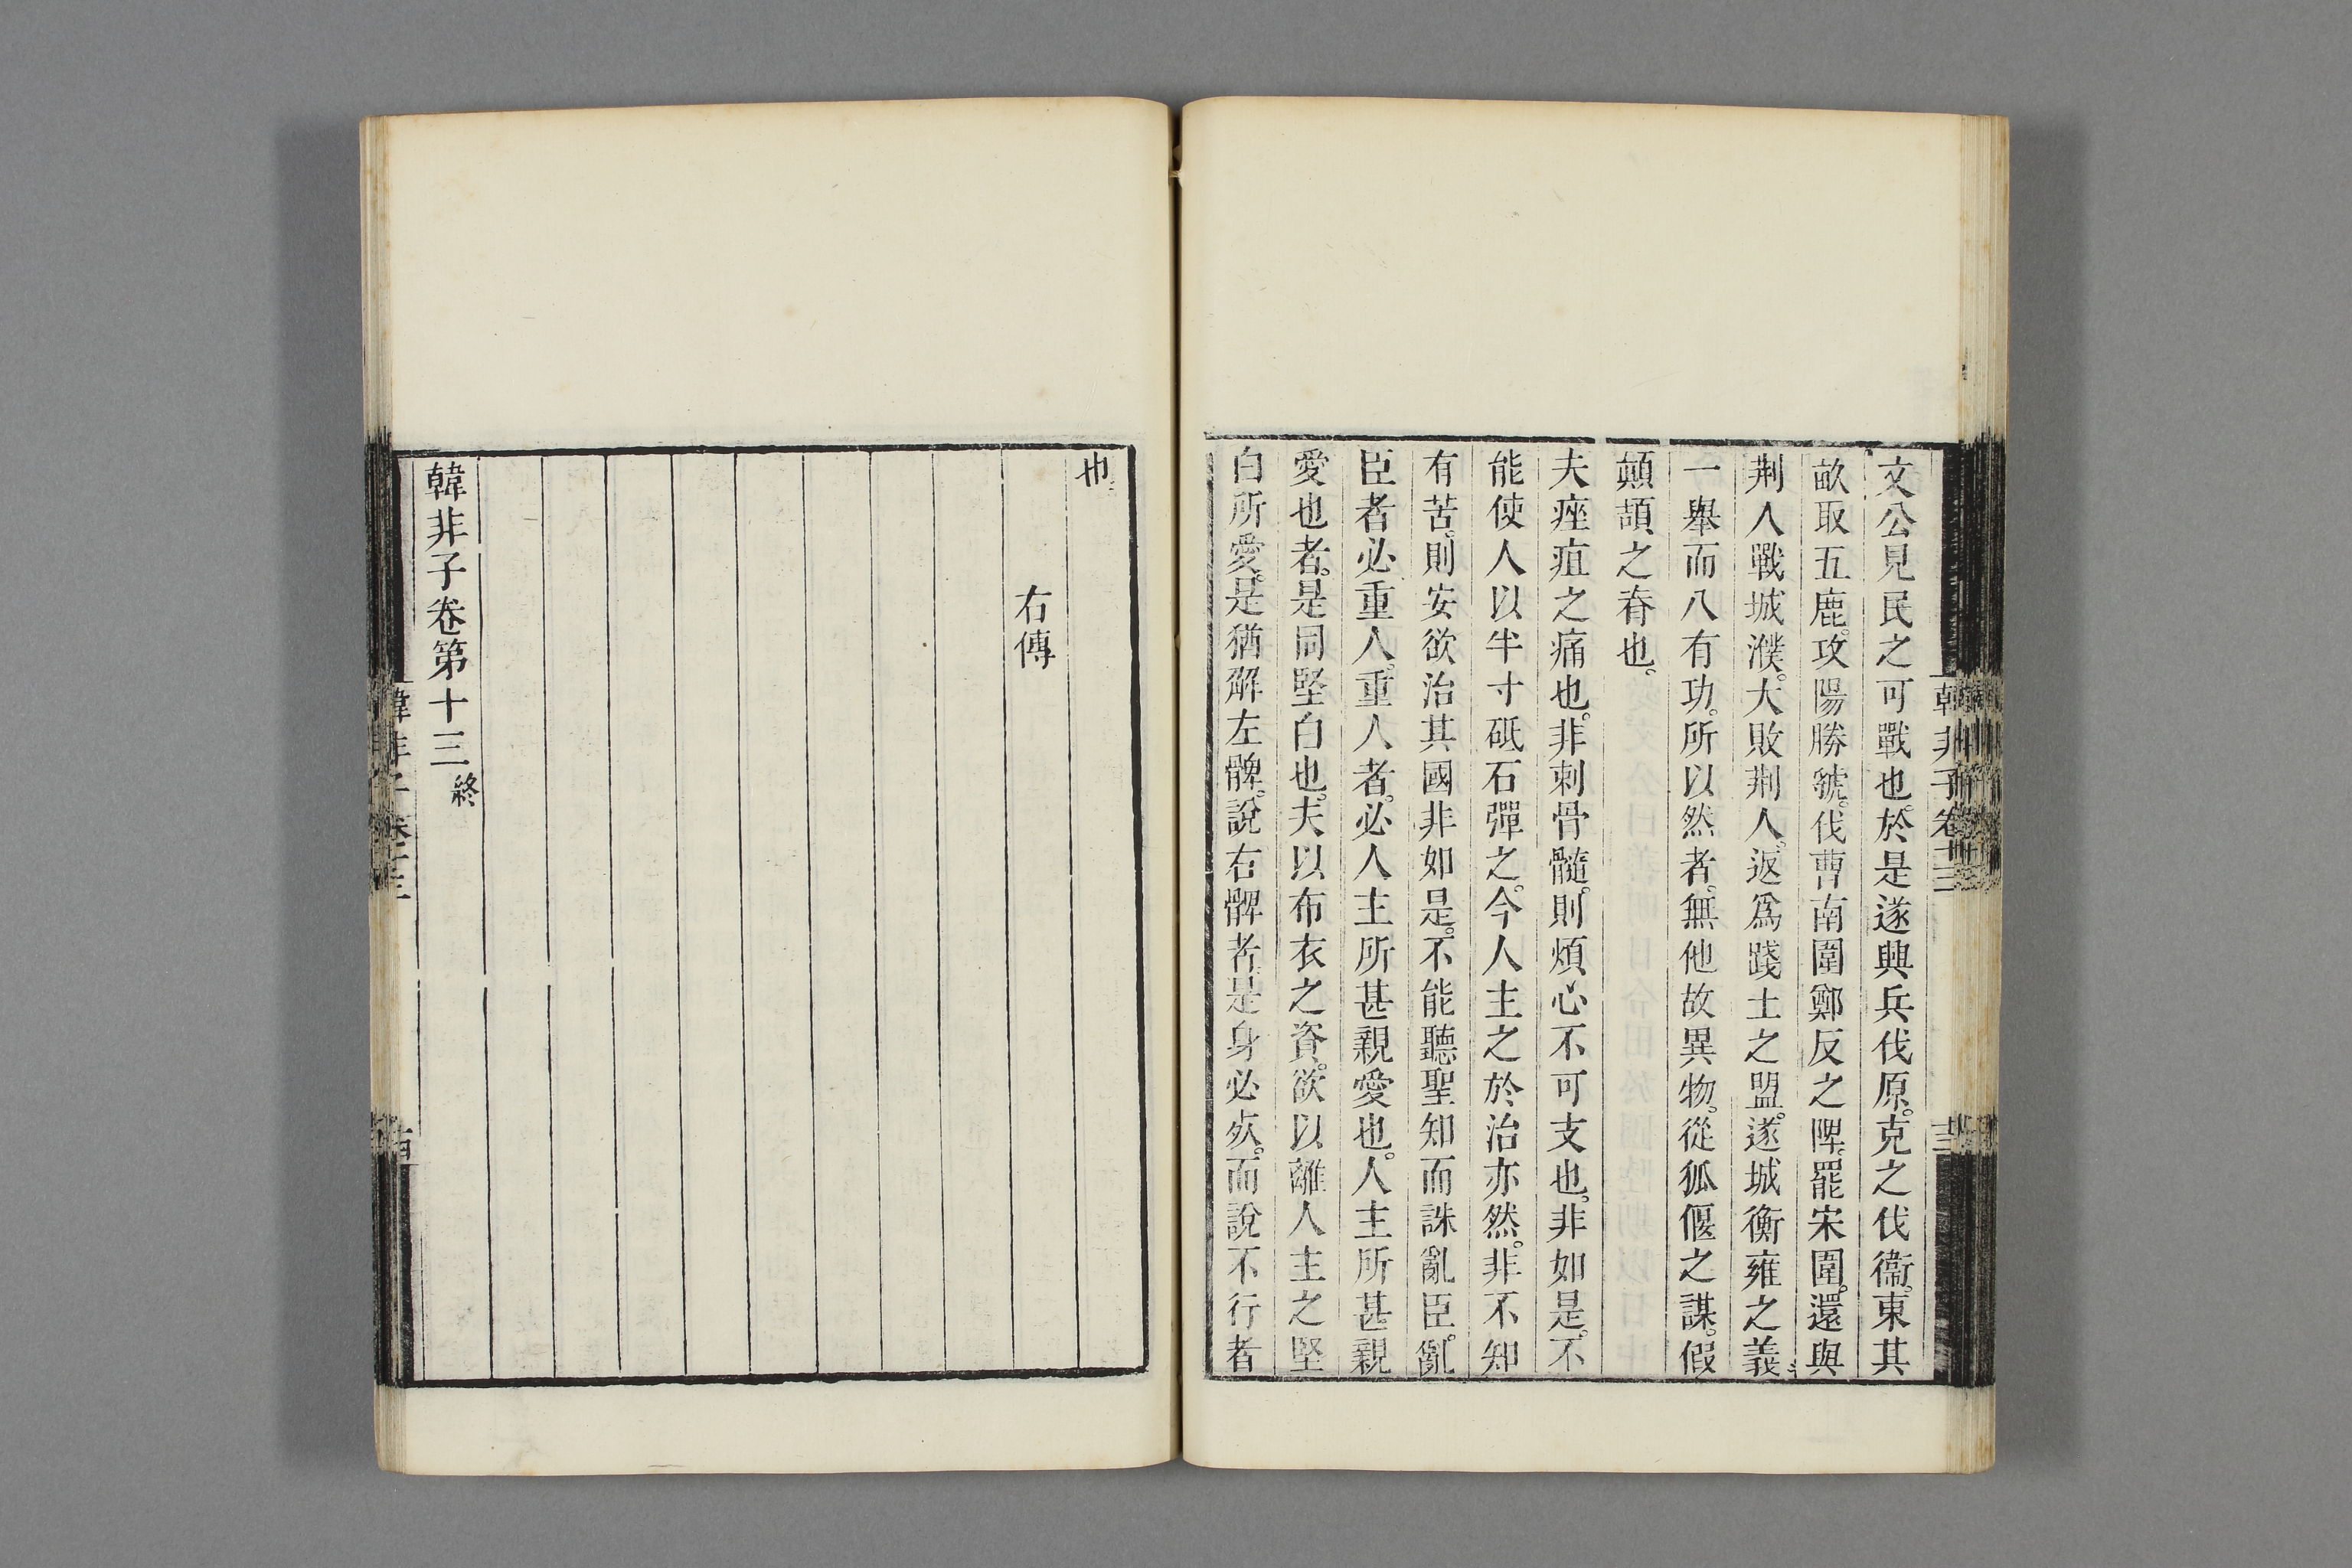 文公見民之可戰也。於是遂興兵伐原。克之伐衞。東其
畝取五鹿。攻陽勝虢。伐曹南圍鄭反之陴。罷宋圍。還與
荆人戰城濮。大敗荆人。返爲踐土之盟。遂城衡雍之義
一舉而八有功。所以然者。無他故異物。從狐偃之謀。假
顛頡之脊也。
夫痤疽之痛也。非刺骨髓。則煩心不可支也。非如是。不
能使人以半寸砥石彈之。今人主之於治亦然。非不知
有苦。則安欲治其國非如是。不能聽聖知而誅亂臣。亂
臣者必重人。重人者。必人主所甚親愛也。人主所甚親
愛也者。是同堅白也。夫以布衣之資。欲以離人主之堅
白所愛。是猶解左髀。說右髀者。是身必㱙。而說不行者
也。
右傳
韓非子卷第十三 終
韓非子卷十三
十三
韓非子 卷十三
十四